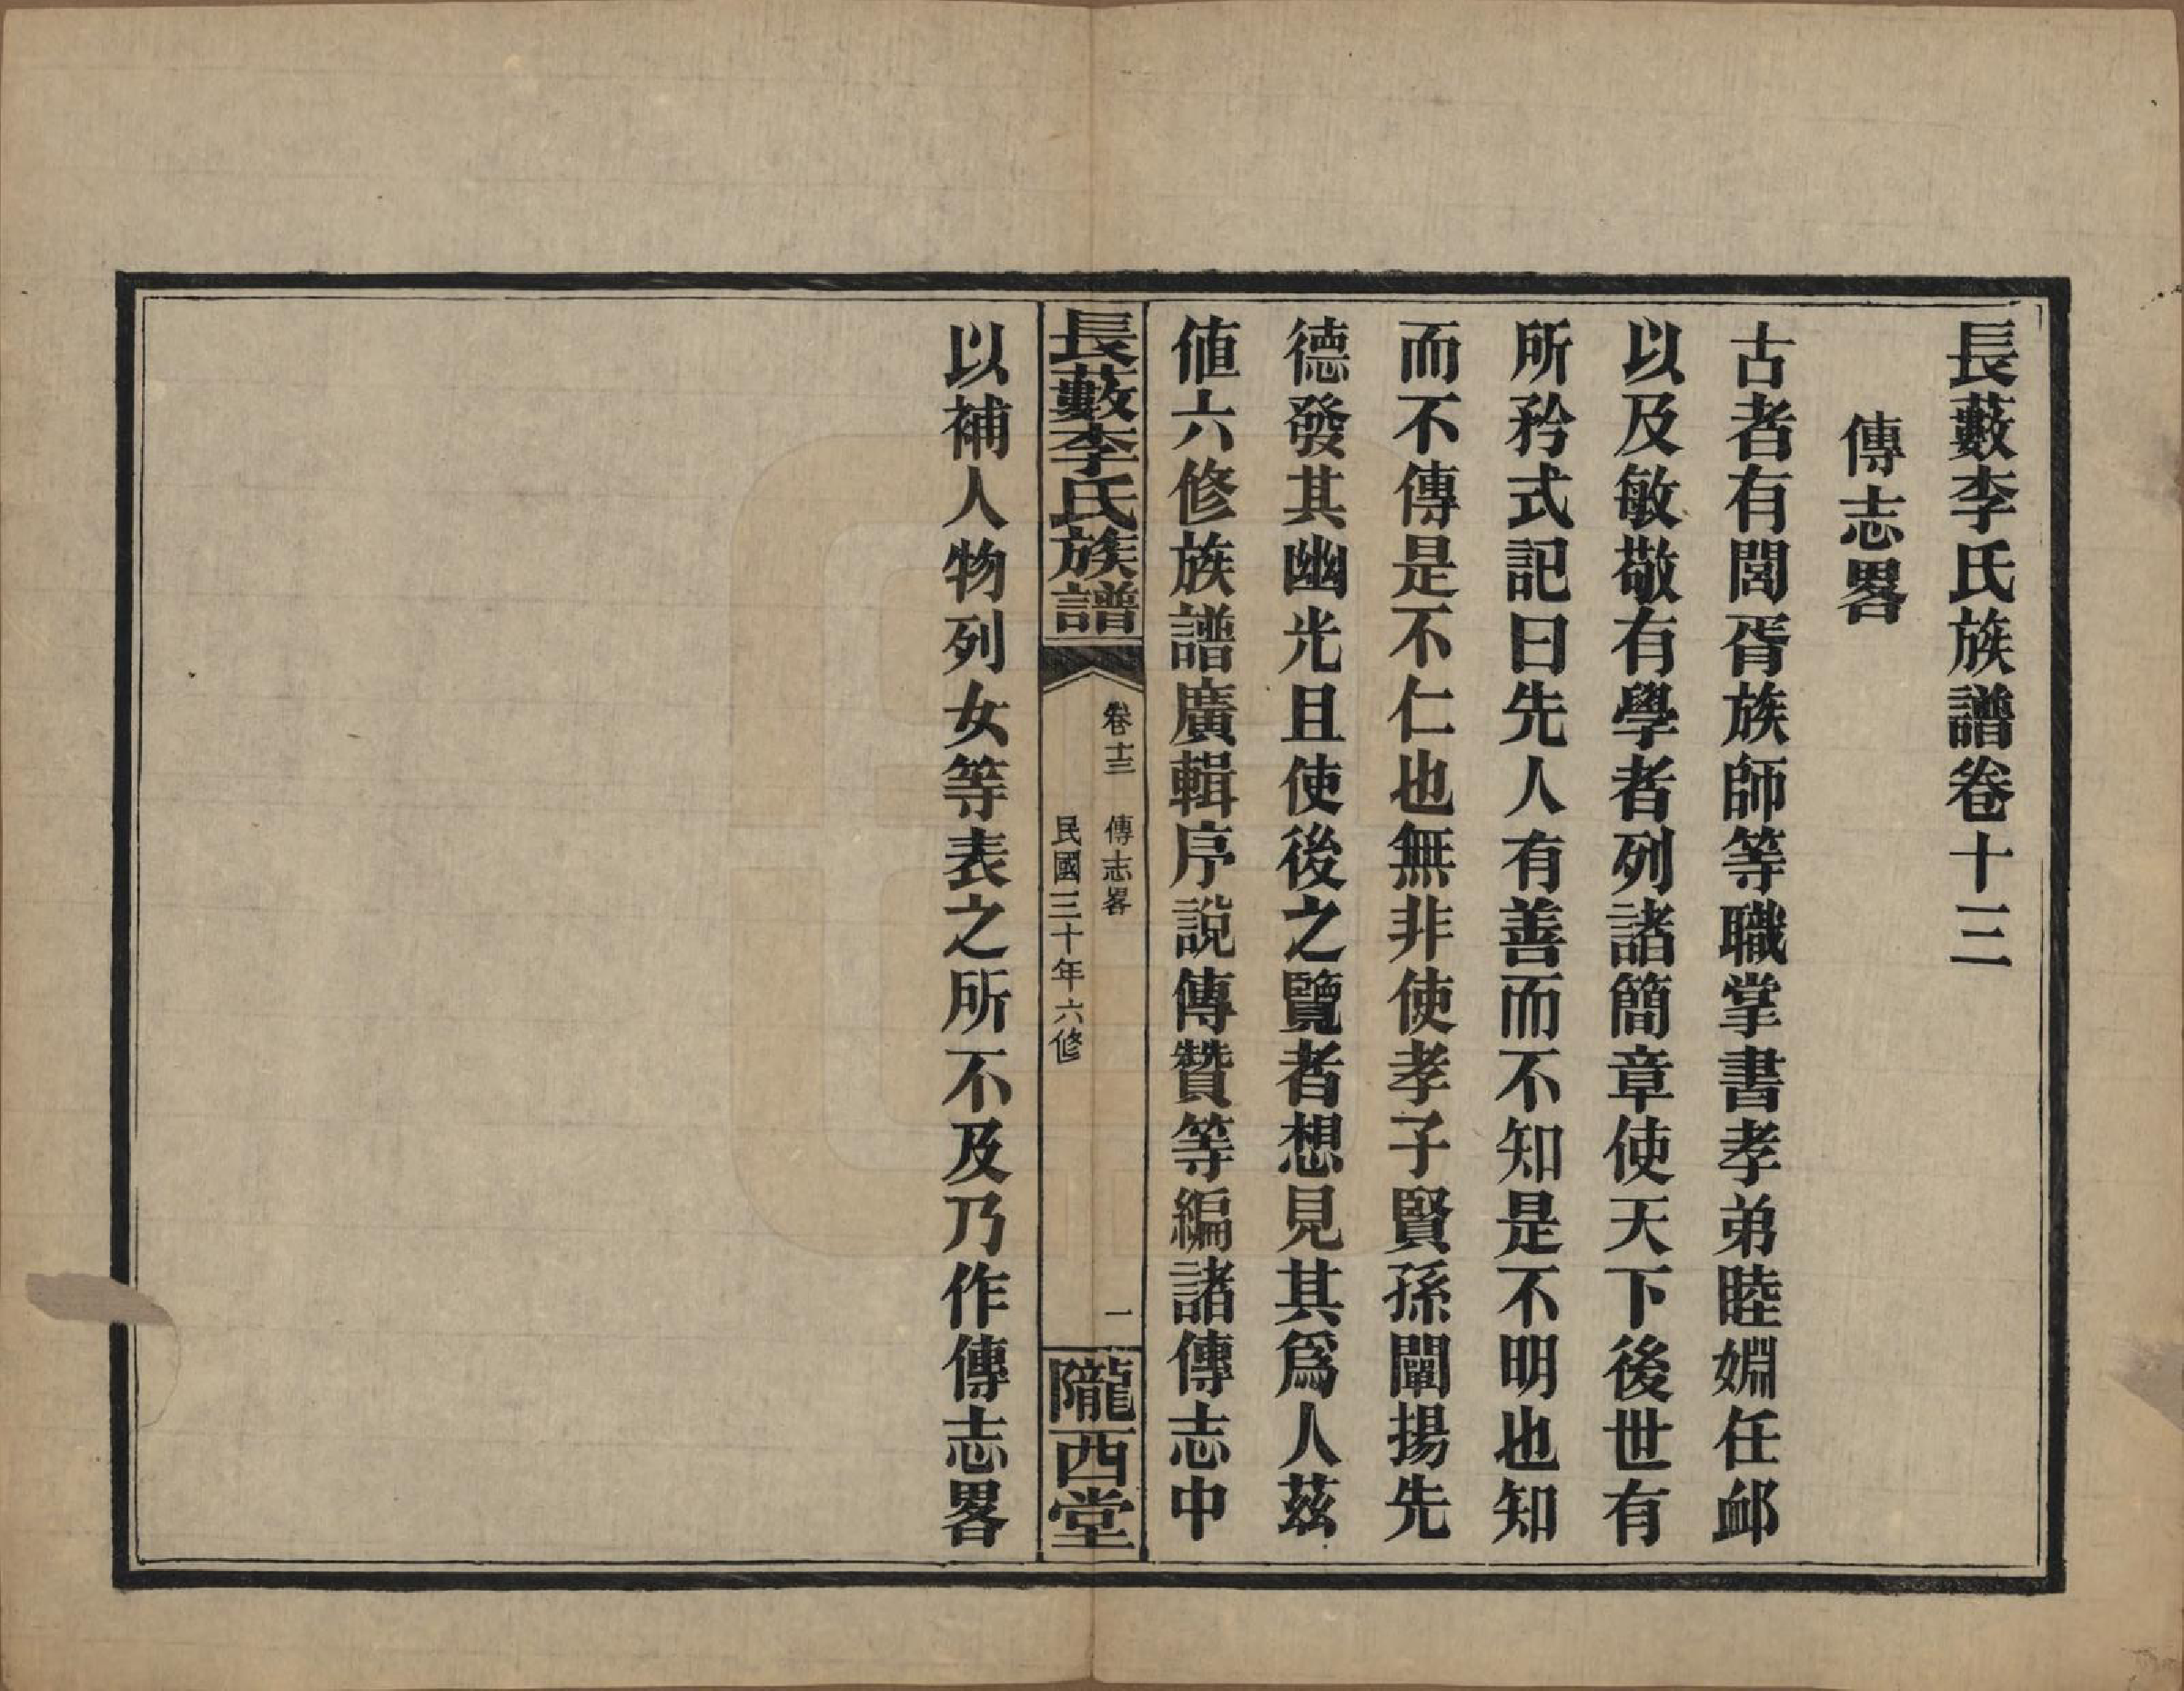 長藪李氏族譜卷十三
傳志畧
古者有閭胥族師等職掌書孝弟睦婣任卹
以及敏敬有學者列諸簡章使天下後世有
所矜式記曰先人有善而不知是不明也知
而不傳是不仁也無非使孝子賢孫闡揚先
德發其幽光且使後之覽者想見其爲人茲
値六修族譜廣輯序說傳贊等編諸傳志中
長藪李氏族譜
卷十三 傳志畧 一
民國三十年六修
隴西堂
以補人物列女等表之所不及乃作傳志畧